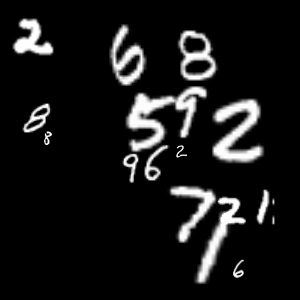 2 6 8
8 8 5 9 2
9 6 2
7 2 1
6